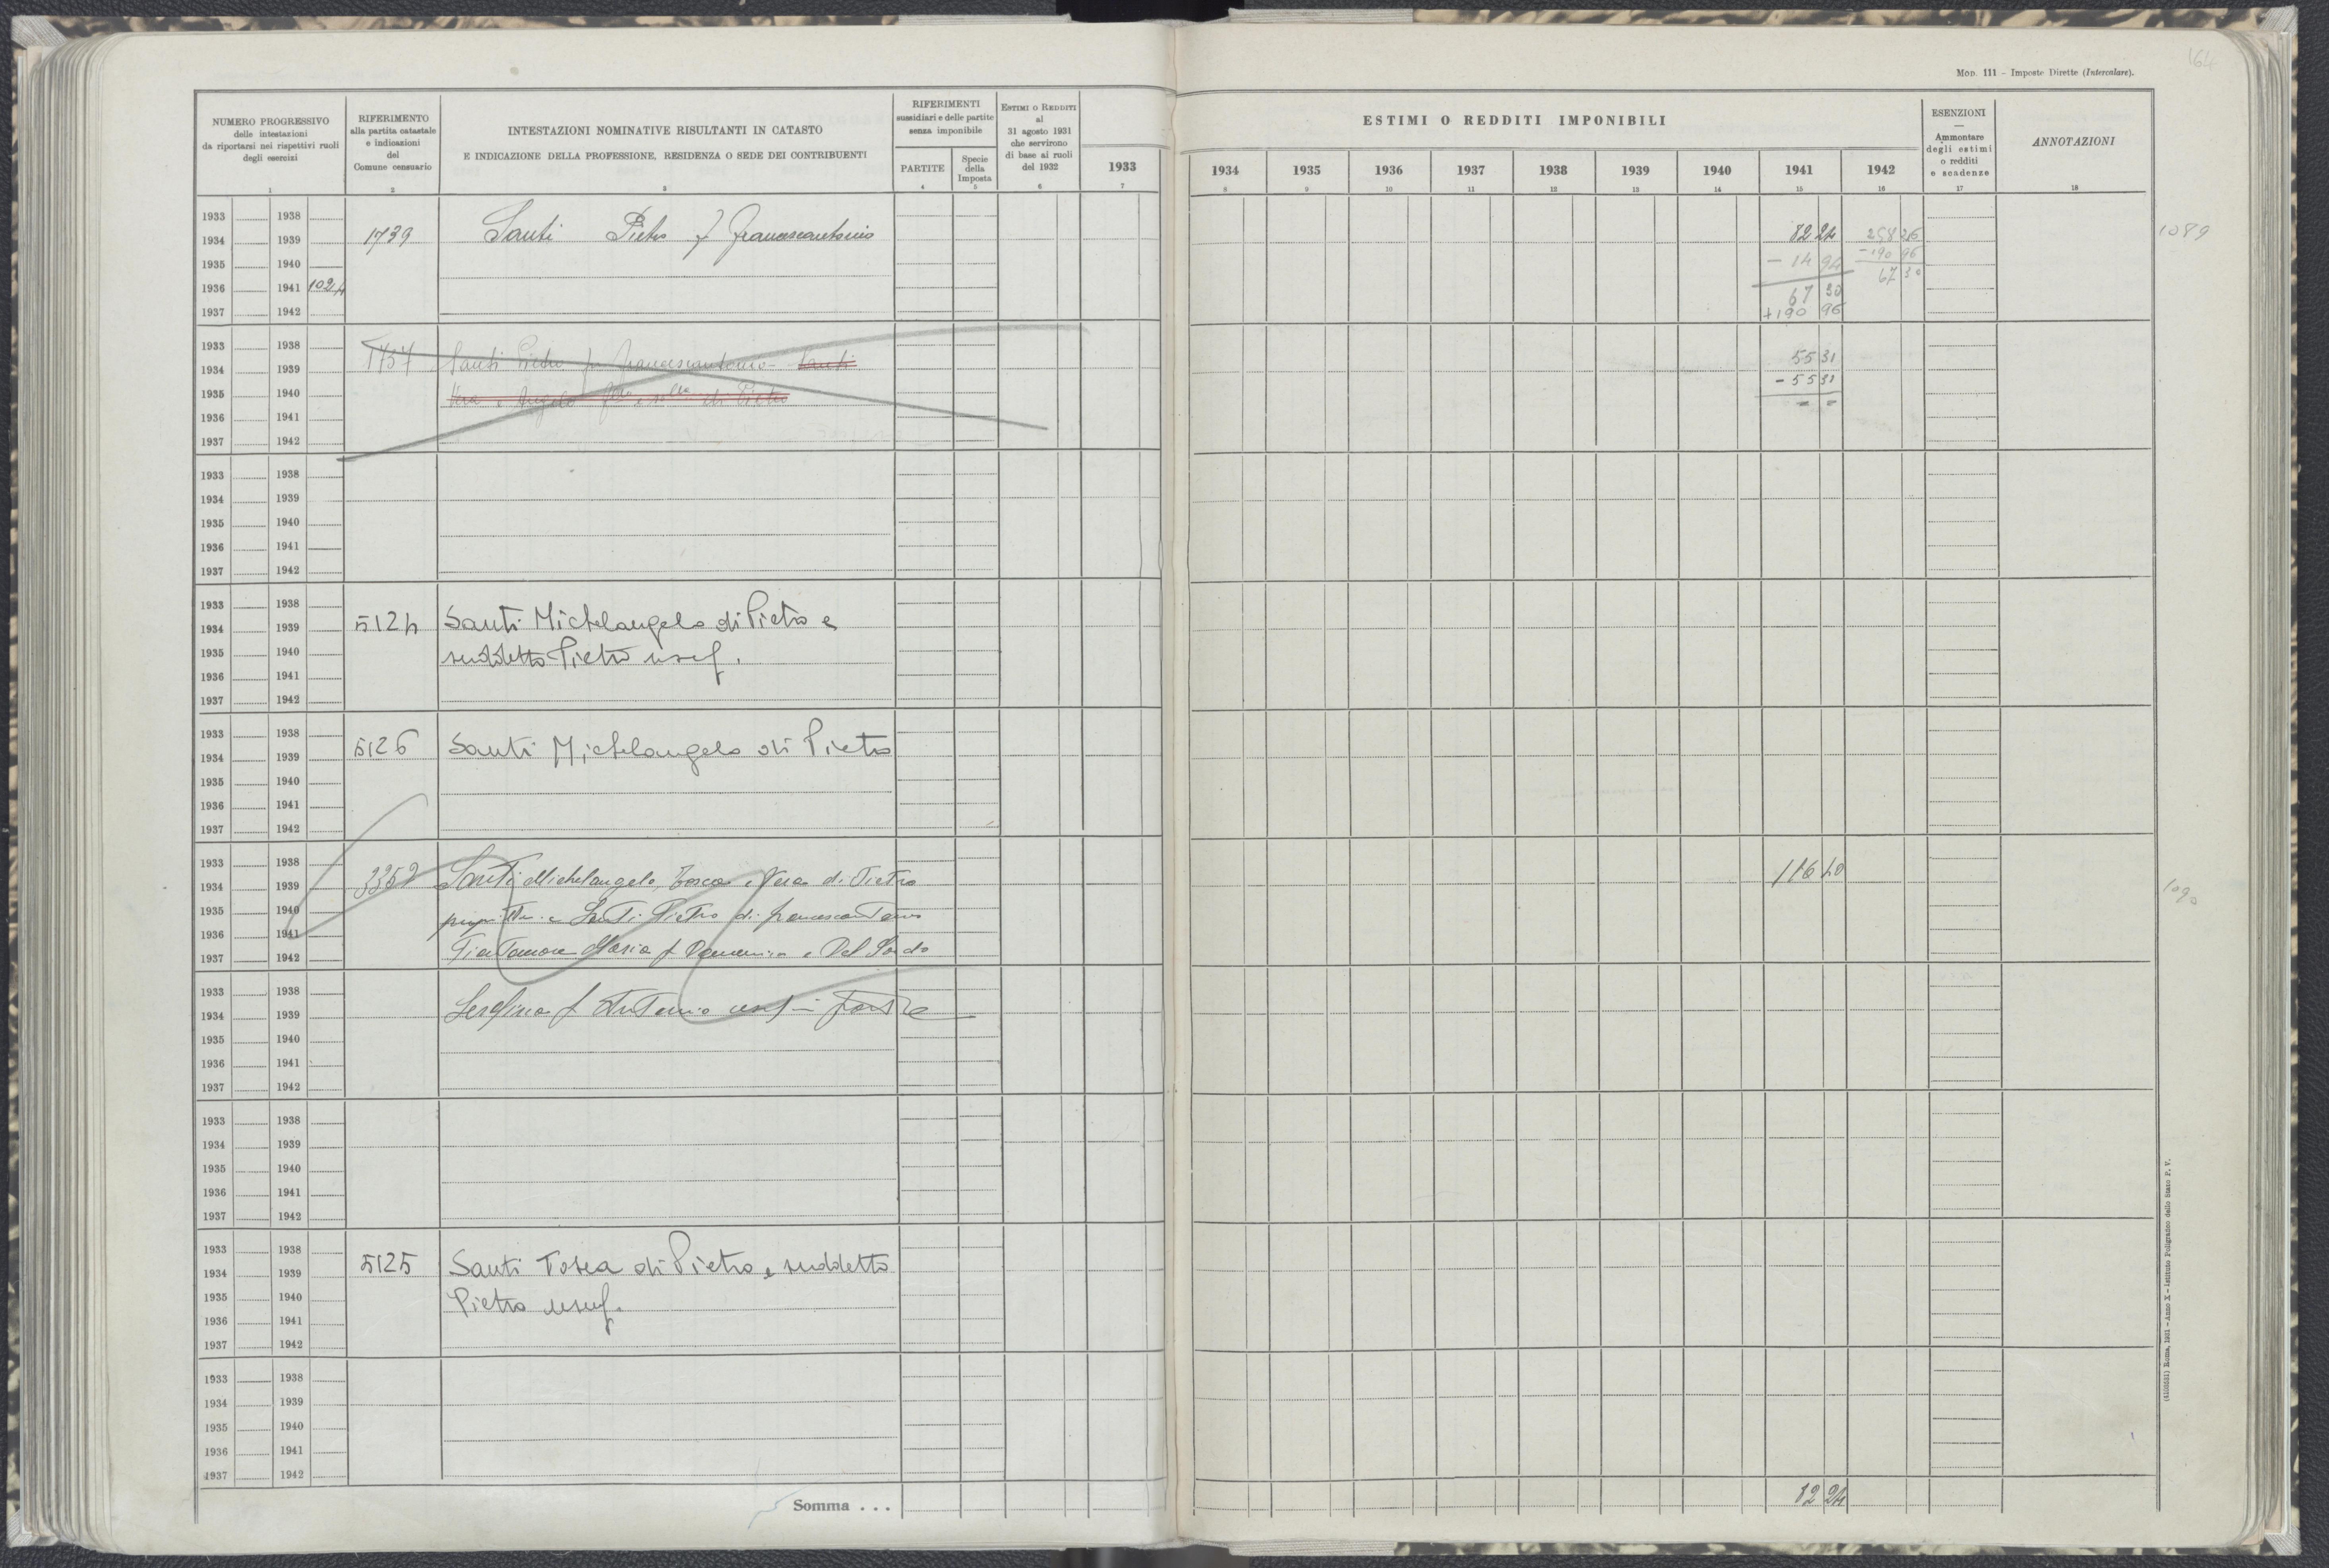 164
MOD. 111 - Imposte Dirette (Intercalare).
NUMERO PROGRESSIVO
delle intestazioni
da riportarsi nei rispettivi ruoli
degli esercizi
1
RIFERIMENTO
alla partita catastale
e indicazioni
del
Comune censuario
2
INTESTAZIONI NOMINATIVE RISULTANTI IN CATASTO
E INDICAZIONE DELLA PROFESSIONE, RESIDENZA O SEDE DEI CONTRIBUENTI
3
RIFERIMENTI
sussidiari e delle partite
senza imponibile
PARTITE
4
Specie
della
Imposta
5
ESTIMI O REDDITI
al
31 agosto 1931
che servirono
di base ai ruoli
del 1932
6
1933
7
ESTIMI O REDDITI IMPONIBILI
1934 1935 1936 1937 1938 1939 1940 1941 1942
8 9 10 11 12 13 14 15 16
ESENZIONI
—
Ammontare
degli estimi
o redditi
e scadenze
17
ANNOTAZIONI
18
1933 1938
1934 1939 1739 Santi Pietro f Francescantonio 82 24 258 26 1089
1935 1940 - 14 94 - 190 96
1936 1941 1024 67 30 67 30
1937 1942 + 190 96
1933 1938
1934 1939 1737 Santi Pietro fu Francescantonio - Santi 55 31
1935 1940 Vera e Angelo di Pietro - 55 31
1936 1941 - -
1937 1942
1933 1938
1934 1939
1935 1940
1936 1941
1937 1942
1933 1938
1934 1939 5124 Santi Michelangelo di Pietro e
1935 1940 suddetto Pietro usuf.
1936 1941
1937 1942
1933 1938
1934 1939 5126 Santi Michelangelo di Pietro
1935 1940
1936 1941
1937 1942
1933 1938
1934 1939 3352 Santi Michelangelo, Tosca e Vera di Pietro 116 40 1090
1935 1940 e Santi Pietro di Francescantonio
1936 1941
1937 1942 Maria f Domenico e Del
1933 1938
1934 1939 f Antonio usuf in parte
1935 1940
1936 1941
1937 1942
1933 1938
1934 1939
1935 1940
1936 1941
1937 1942
1933 1938
1934 1939 5125 Santi Tosca di Pietro e suddetto
1935 1940 Pietro usuf.
1936 1941
1937 1942
1933 1938
1934 1939
1935 1940
1936 1941
1937 1942
Somma . . . 82 24
(4103551) Roma, 1931 - Anno X - Istituto Poligrafico dello Stato P. V.